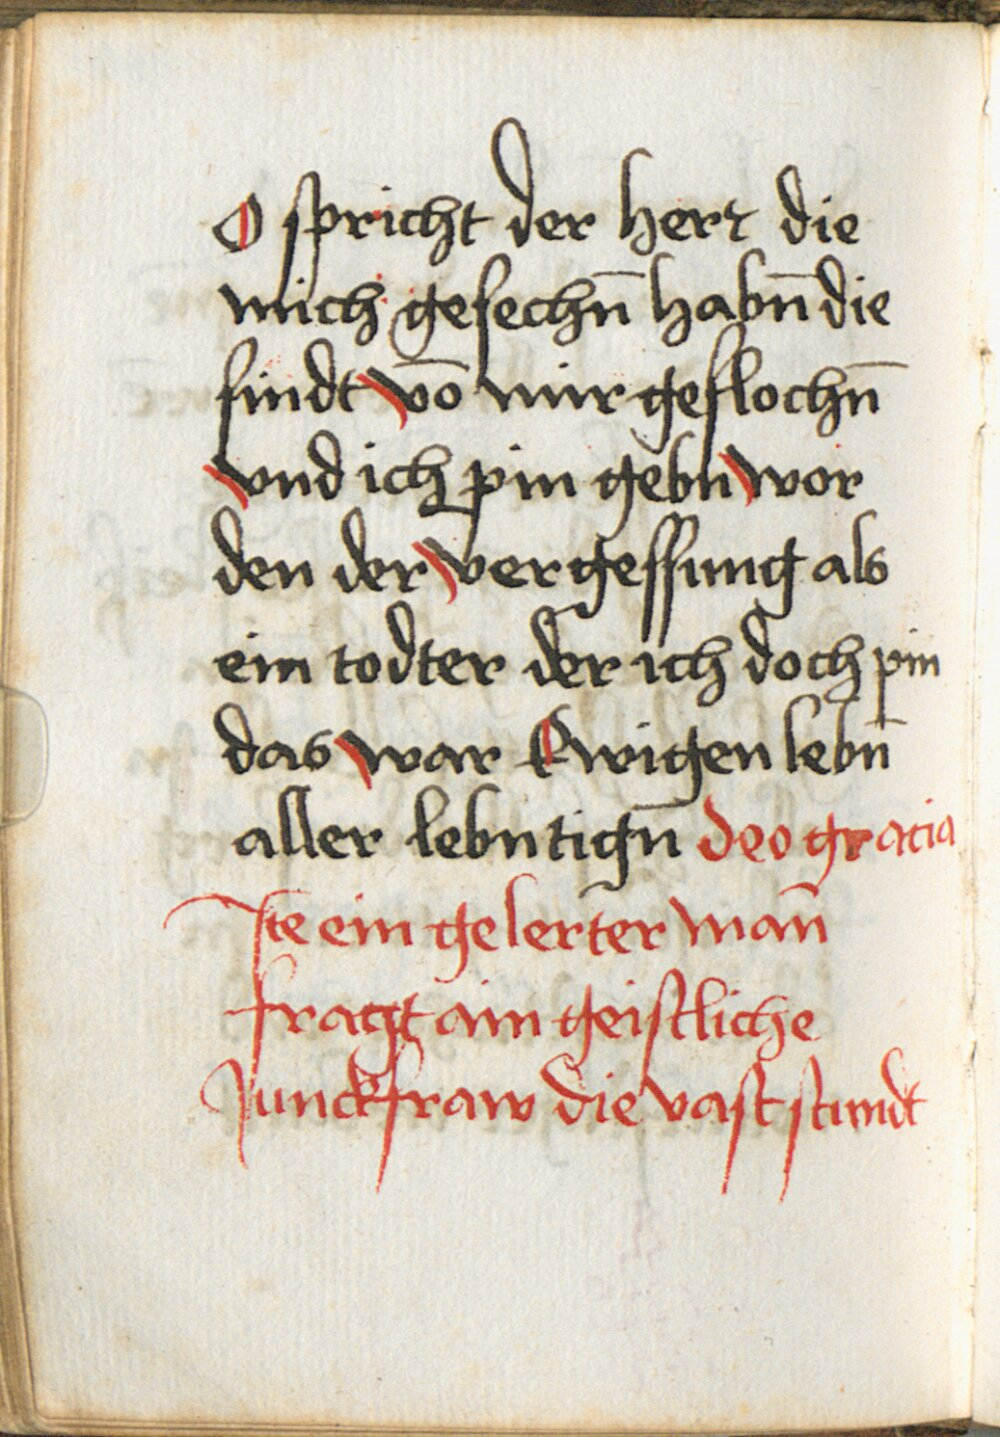 O spricht der herr die
mich gesechn̄ habn̄ die
sindt vō mir geflochn̄
vnd ich pin gebn wor
den der vergessung als
ein todter der ich doch pin
das war Ewigen lebn̄
aller lebntign̄ deo gracia
Ite ein gelerter̄ man̄
fragt ain geistliche
Junckfraw die vast stundt